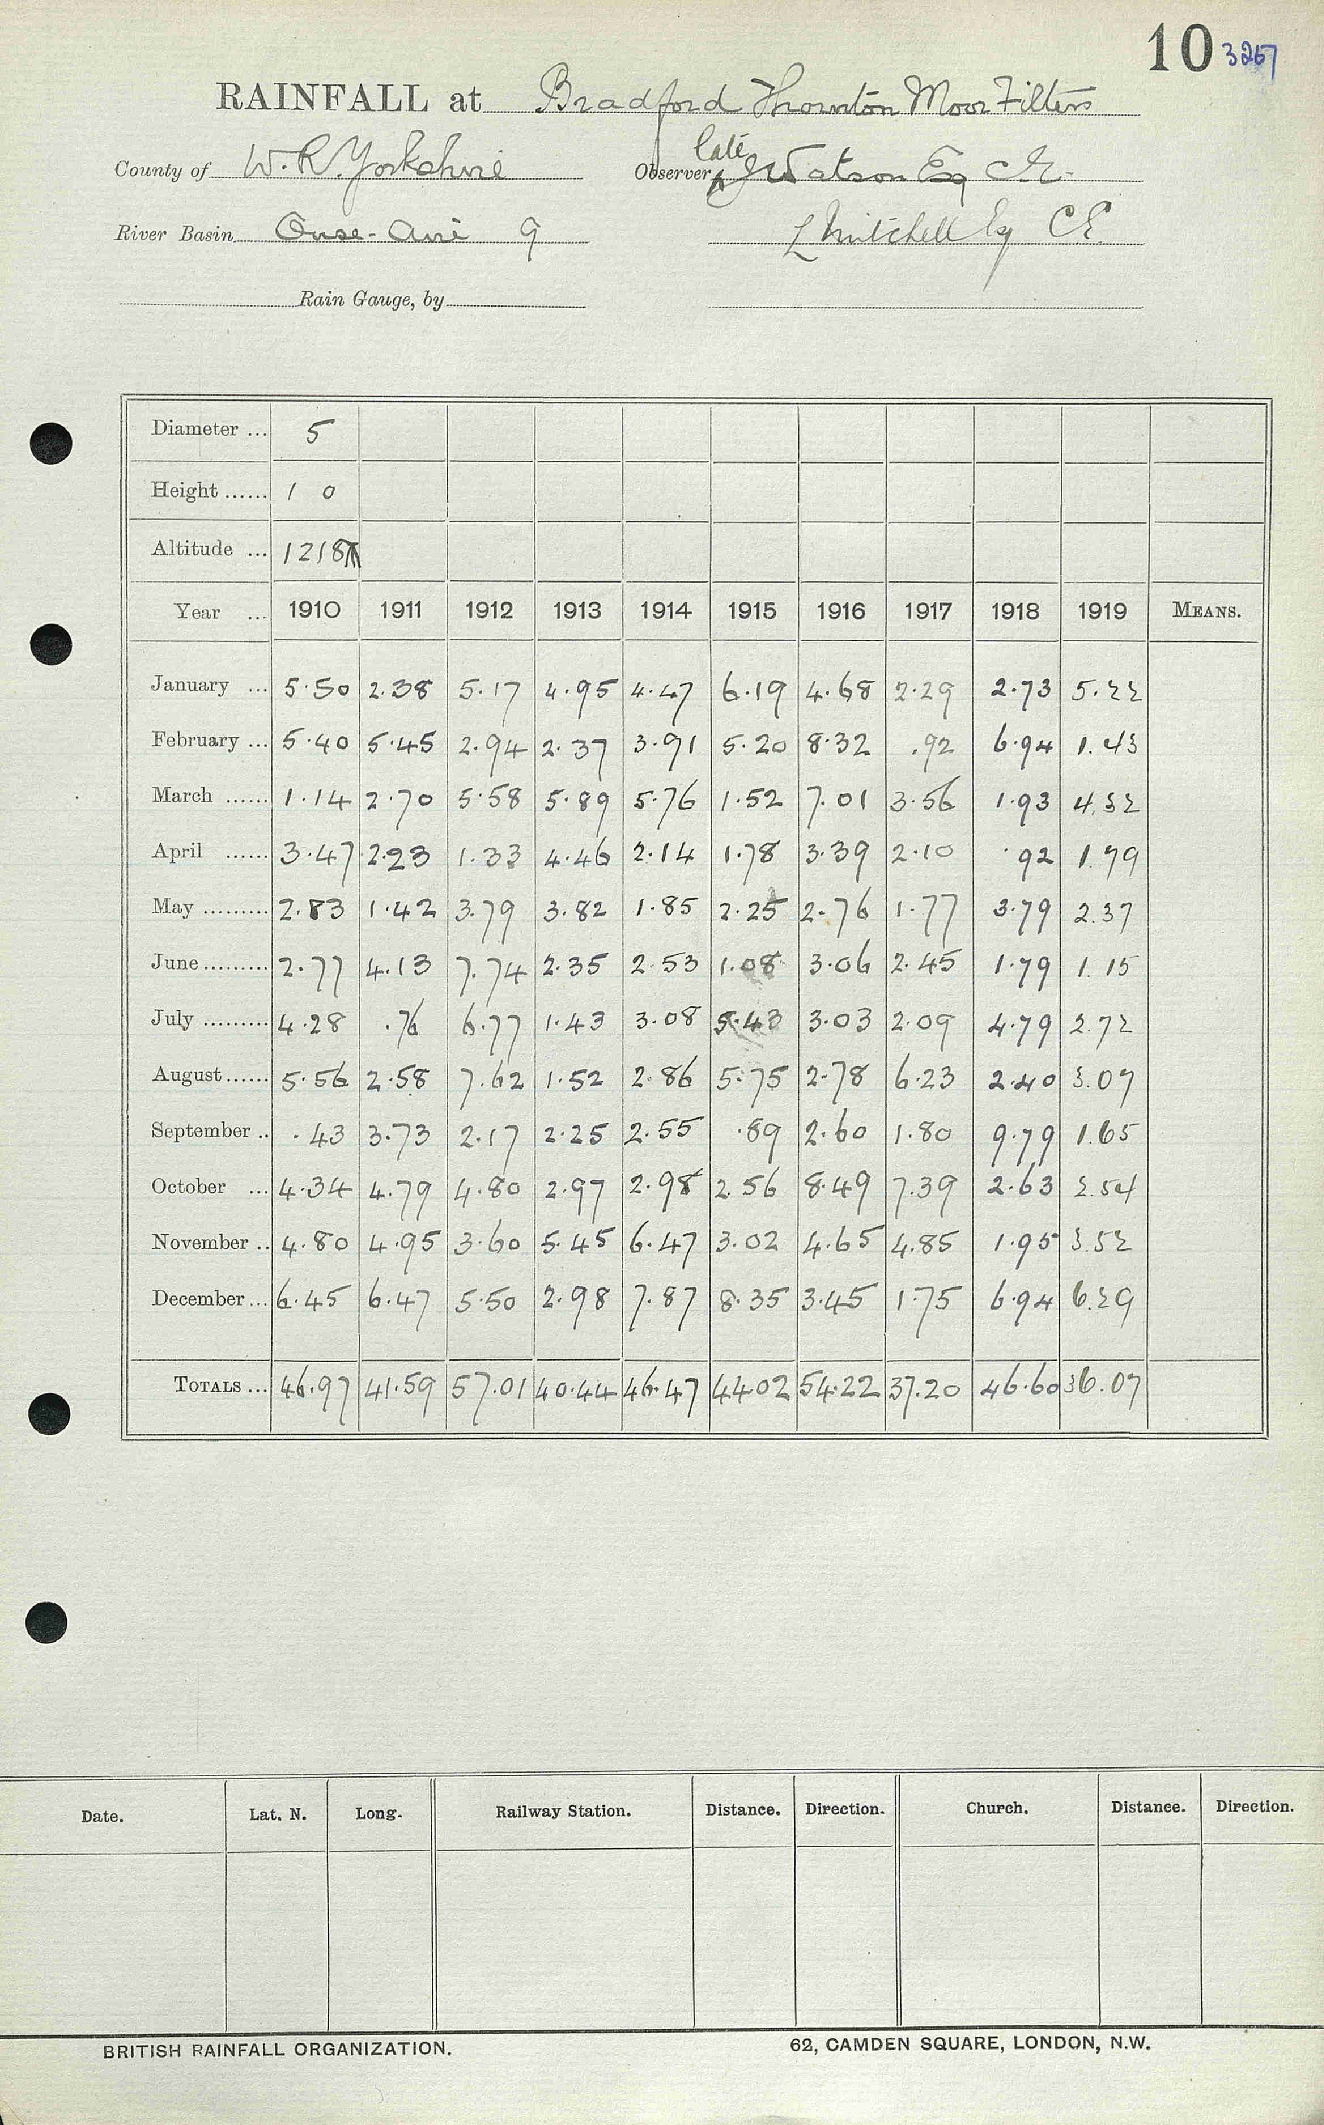 10 3267
RAINFALL at Bradford Thornton Moor Filters
County of W.R. Yorkshire Observer late J Watson Esq C.E.
River Basin Ouse-Aire 9 L Mitchell Esq C.E.
Rain Gauge, by
Diameter ... 5
Height ...... 1 0
Altitude ... 1218
Year ... 1910 1911 1912 1913 1914 1915 1916 1917 1918 1919 MEANS.
January ... 5.50 2.38 5.17 4.95 4.47 6.19 4.68 2.29 2.73 5.22
February ... 5.40 5.45 2.94 2.37 3.91 5.20 8.32 .92 6.94 1.43
March ...... 1.14 2.70 5.58 5.89 5.76 1.52 7.01 3.56 1.93 4.32
April ...... 3.47 2.23 1.33 4.46 2.14 1.78 3.39 2.10 .92 1.79
May ......... 2.83 1.42 3.79 3.82 1.85 2.25 2.76 1.77 3.79 2.37
June ......... 2.77 4.13 7.74 2.35 2.53 1.08 3.06 2.45 1.79 1.15
July ......... 4.28 .76 6.77 1.43 3.08 5.43 3.03 2.09 4.79 2.72
August ...... 5.56 2.58 7.62 1.52 2.86 5.75 2.78 6.23 2.40 3.07
September .. .43 3.73 2.17 2.25 2.55 .89 2.60 1.80 9.79 1.65
October ... 4.34 4.79 4.80 2.97 2.98 2.56 8.49 7.39 2.63 2.54
November .. 4.80 4.95 3.60 5.45 6.47 3.02 4.65 4.85 1.95 3.52
December ... 6.45 6.47 5.50 2.98 7.87 8.35 3.45 1.75 6.94 6.29
TOTALS ... 46.97 41.59 57.01 40.44 46.47 44.02 54.22 37.20 46.60 36.07
Date. Lat. N. Long. Railway Station. Distance. Direction. Church. Distance. Direction.
BRITISH RAINFALL ORGANIZATION. 62, CAMDEN SQUARE, LONDON, N.W.